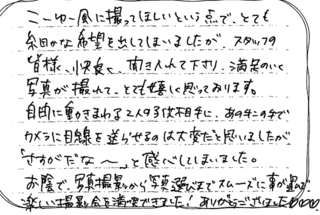 こーゆー風に撮ってほしいという点で、とても
細かな希望を出してしまいましたが スタッフの
皆様、快く、聞き入れて下さり、満足のいく
写真が撮れて、とても嬉しく思っております。
自由に動きまわる2人の3才相手に、あの手この手で
カメラに目線を送らせるのは大変だと思いましたが
「さすがだな〜」と感心してしまいました。
お陰で、写真撮影から写真選びまでスムーズに事が運んで
楽しい撮影会を満喫できました! ありがとうございました♡♡♡